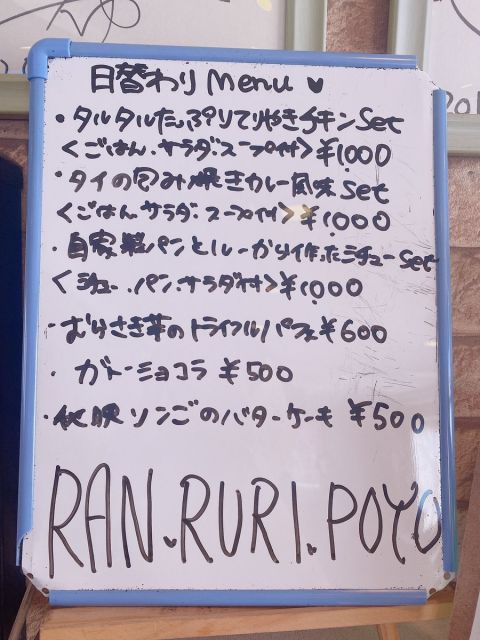 日替わり Menu ♥
・タルタルたっぷりてりやきチキン Set
<ごはん.サラダ.スープ付> ¥1,000
・タイの包み焼きカレー風味 Set
<ごはん サラダ.スープ付> ¥1,000
・自家製パンとルーから作ったシチュー Set
<シチュー.パン.サラダ付> ¥1,000
・むらさき芋のトライフルパフェ ¥600
・ガトーショコラ ¥500
・秋映リンゴのバターケーキ ¥500
RAN.RURI.POYO